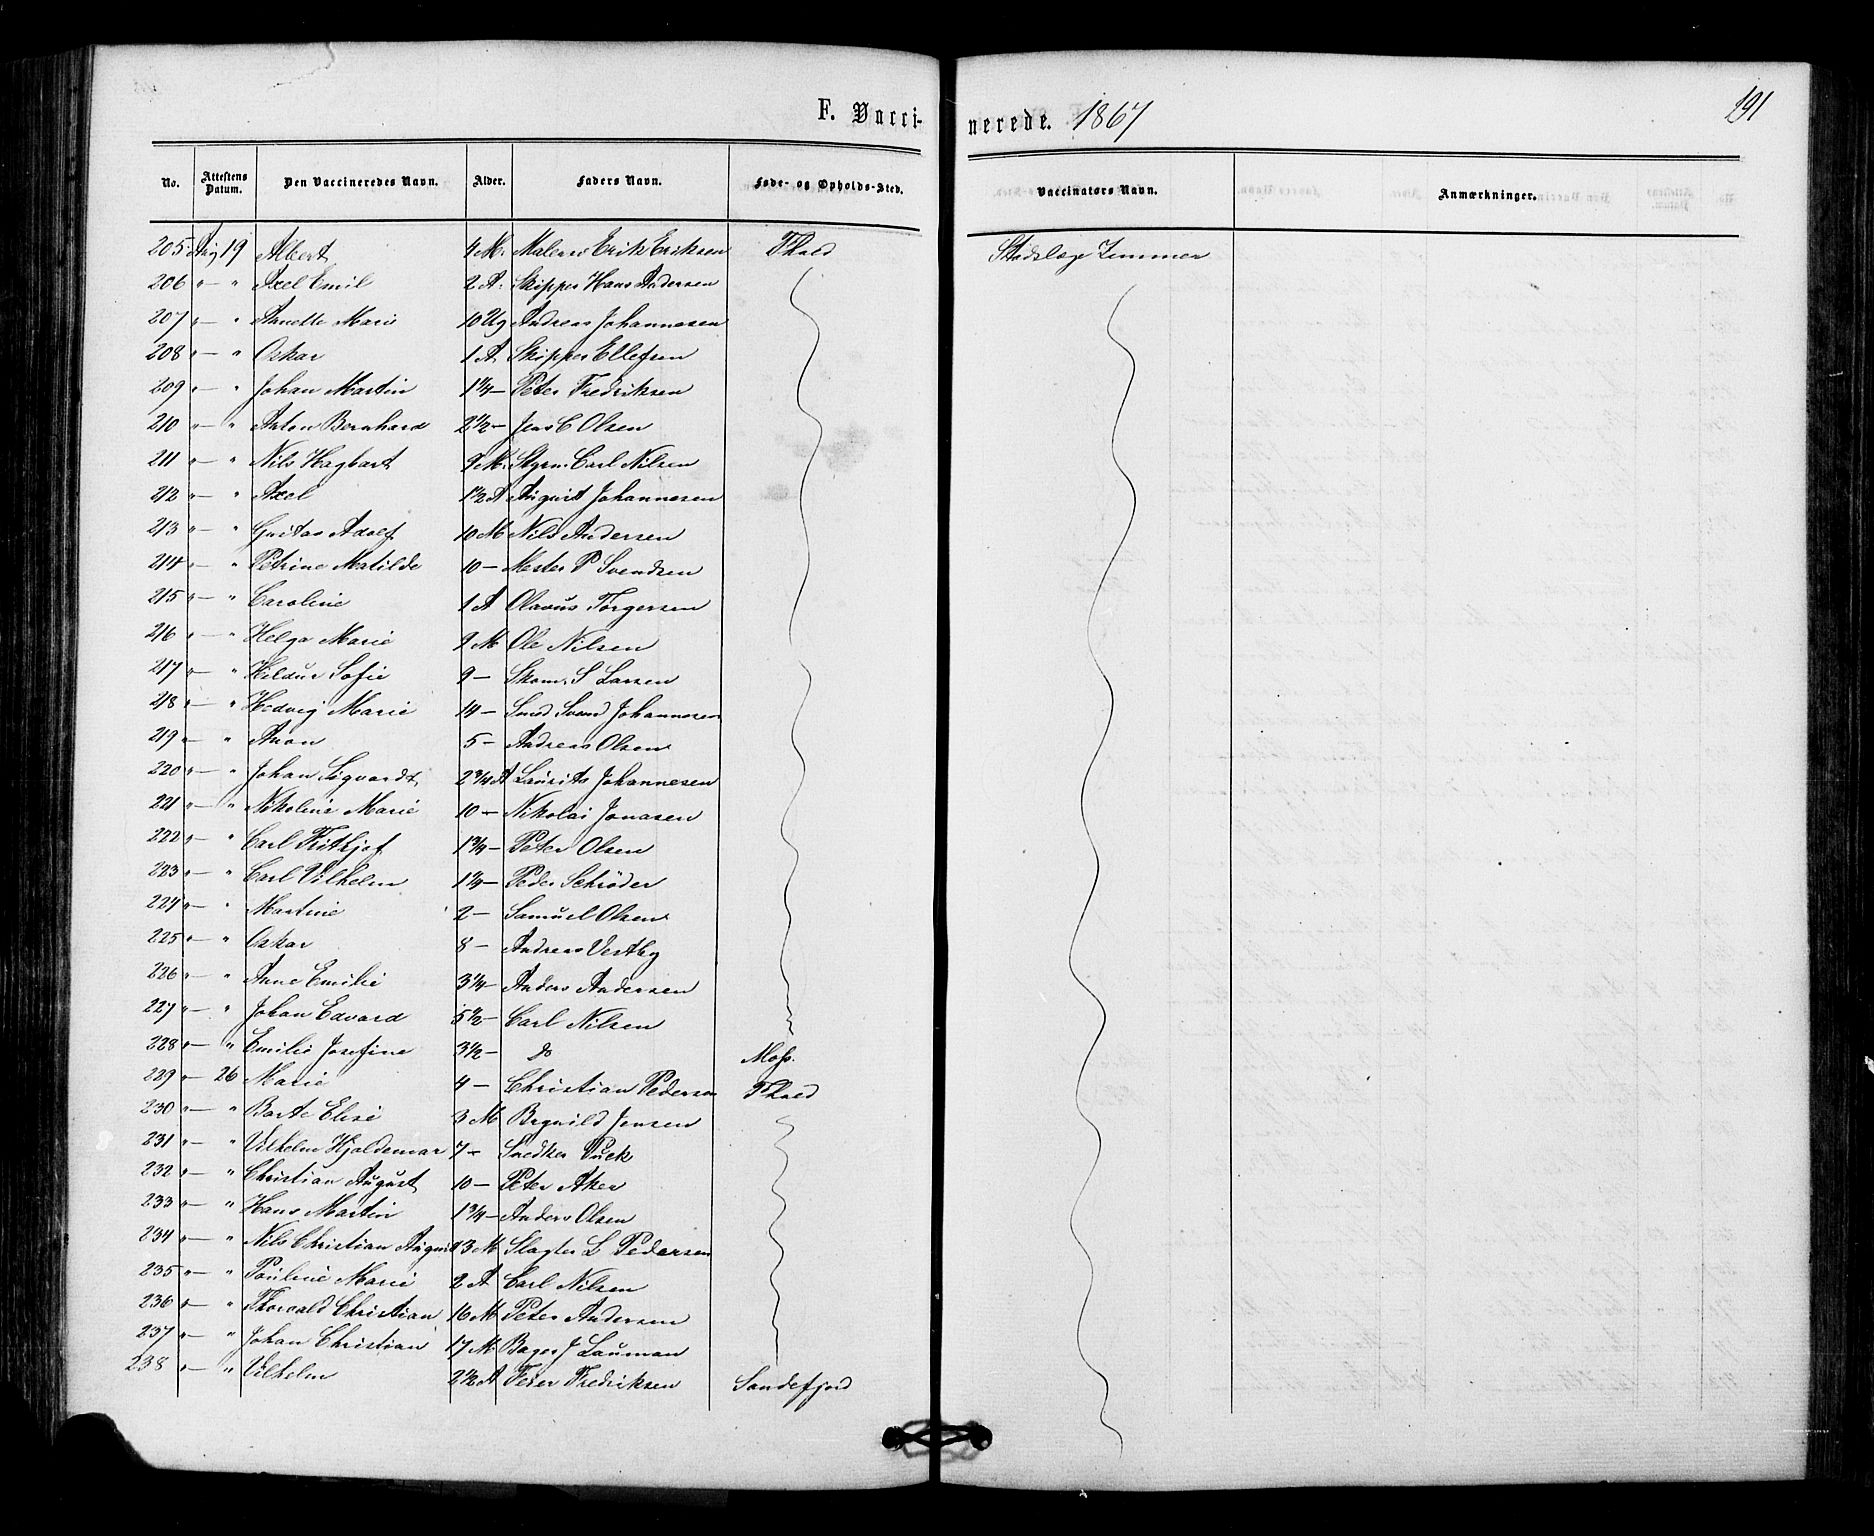 191
F. Vacci- nerede. 1867
No. Attestens Datum. Den Vaccineredes Navn. Alder. Faders Navn. Føde- og Opholds-Sted. Vaccinators Navn. Anmærkninger.
205 Aug 19 Albert 4 M. Maler Erik Eriksen Fhald Stadslæge Zimmer
206 " — " Axel Emil 2 A. Skipper Hans Andersen
207 " — " Anette Marie 10 Ug Andreas Johannesen
208 " — " Oskar 1 A Skipper Ellefsen
209 " — " Johan Martin 1 1/4 — Peter Fredriksen
210 " — " Anton Bernhard 2 1/2 — Jens C Olsen
211 " — " Nils Hagbart 9 M. Styrm. Carl Nilsen
212 " — " Axel 1 1/2 A August Johannesen
213 " — " Gustav Adolf 10 M Nils Andersen
214 " — " Petrine Matilde 10 — Mester P Svendsen
215 " — " Caroline 1 A Olavus Torgersen
216 " — " Helga Marie 9 M Ole Nilsen
217 " — " Hildur Sofie 9 — Skom. S Larsen
218 " — " Hedvig Marie 14 — Smed Svend Johannesen
219 " — " Anon 5 — Andreas Olsen
220 " — " Johan Sigvardt 2 3/4 A Laurits Johannesen
221 " — " Nikoline Marie 10 — Nikolai Jonasen
222 " — " Carl Fritjof 1 3/4 — Peter Olsen
223 " — " Carl Vilhelm 1 1/4 — Peder Schröder
224 " — " Martine 2 — Samuel Olsen
225 " — " Oskar 8 — Andreas Vestby
226 " — " Anne Emilie 3 1/4 — Anders Andersen
227 " — " Johan Edvard 5 1/2 — Carl Nilsen
228 " — " Emilie Josefine 3 1/2 — do Moss.
229 " — 26 Marie 4 — Christian Pedersen Fhald
230 " — " Elise 3 M Jensen
231 " — " Vilhelm Hjaldemar 7 — Snedker Puck
232 " — " Christian August 10 — Peter Aker
233 " — " Hans Martin 1 3/4 — Anders Olsen
234 " — " Nils Christian August 13 M Slagter L Pedersen
235 " — " Pauline Marie 2 A Carl Nilsen
236 " — " Thorvald Christian 16 M. Peter Andersen
237 " — " Johan Christian 17 M. Bager J Lauman
238 " — " Vilhelm 2 1/2 A Peter Fredriksen Sandefjord